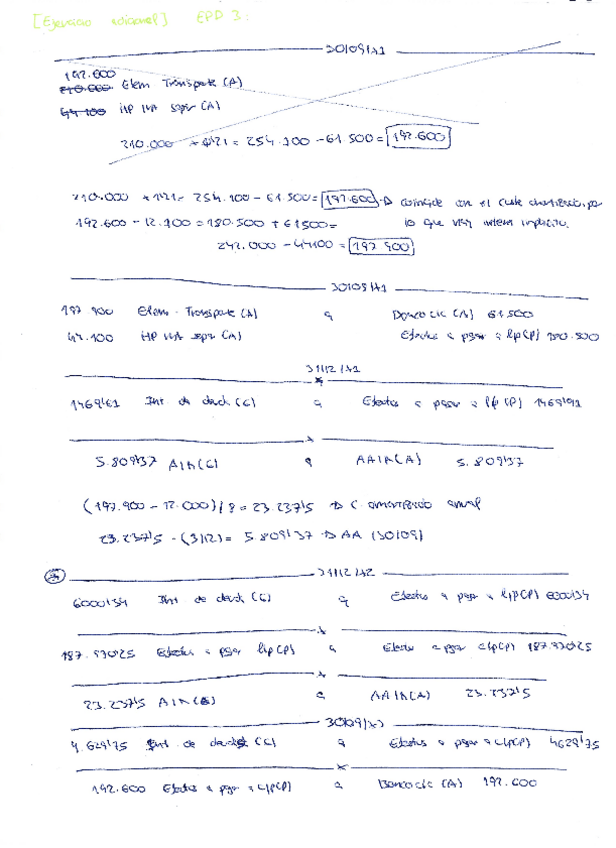 [Ejercicio adicional] EPD 3:
30/09/x1
192.600
210.000 Elem Transporte (A)
44.100 HP IVA sopr (A)
210.000 * 1'21 = 254.100 - 61.500 = 192.600
210.000 * 1'21 = 254.100 - 61.500 = 192.600 → coincide con el coste amortizado, por
192.600 - 12.100 = 180.500 + 61500 = lo que hay interes implícito.
242.000 - 44100 = 197.900
30/09/x1
197.900 Elem. Transporte (A) a Banco c/c (A) 61.500
44.100 HP IVA sopr (A) Efectos a pagar a l/p (P) 180.500
31/12/x1
1469'61 Int de deud (G) a Efectos a pagar a l/p (P) 1469'61
5.809'37 AIA (G) a AAIA (A) 5.809'37
(197.900 - 12.000) / 8 = 23.237'5 → C. amortización anual
23.237'5 - (3/12) = 5.809'37 → AA (30/09)
31/12/x2
6000'34 Int de deud (G) a Efectos a pagar a l/p (P) 6000'34
187.970'25 Efectos a pagar l/p (P) a Efectos a pagar c/p (P) 187.970'25
23.237'5 AIA (G) a AAIA (A) 23.237'5
30/09/x3
4.629'75 Int de deudas (G) a Efectos a pagar a c/p (P) 4629'75
192.600 Efectos a pagar a c/p (P) a Banco c/c (A) 192.600